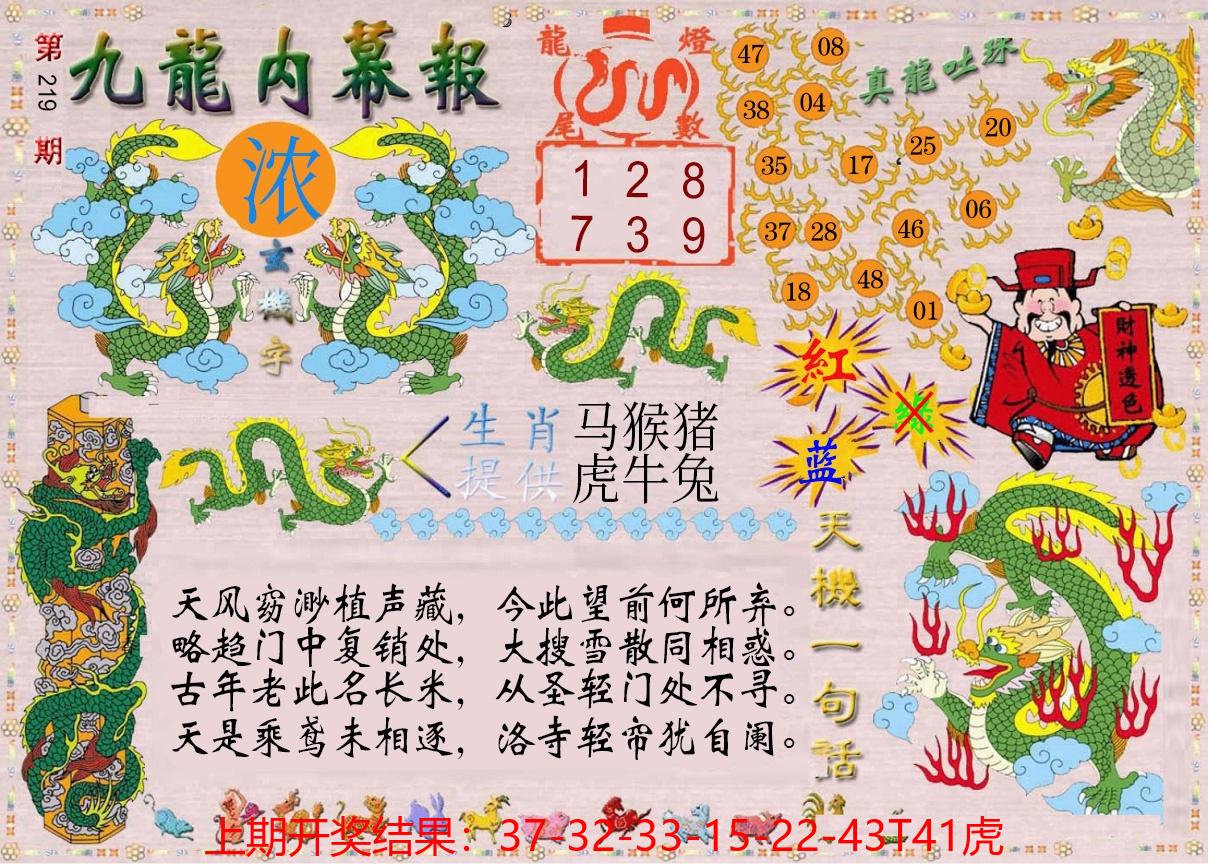 第219期
九龍内幕報
浓
玄機字
龍燈
尾數
1 2 8
7 3 9
真龍吐珠
47 08
38 04
35 17 25 20
37 28 46 06
18 48 01
財神透色
紅
绿
蓝
生肖 马猴猪
提供 虎牛兔
天機一句話
天风窈渺植声藏，今此望前何所弃。
略趋门中复销处，大搜雪散同相惑。
古年老此名长米，从圣轻门处不寻。
天是乘鸢未相逐，洛寺轻帘犹自阑。
上期开奖结果：37-32-33-15-22-43T41虎